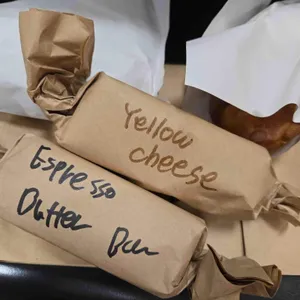 Yellow
cheese
Espresso
Butter Bar